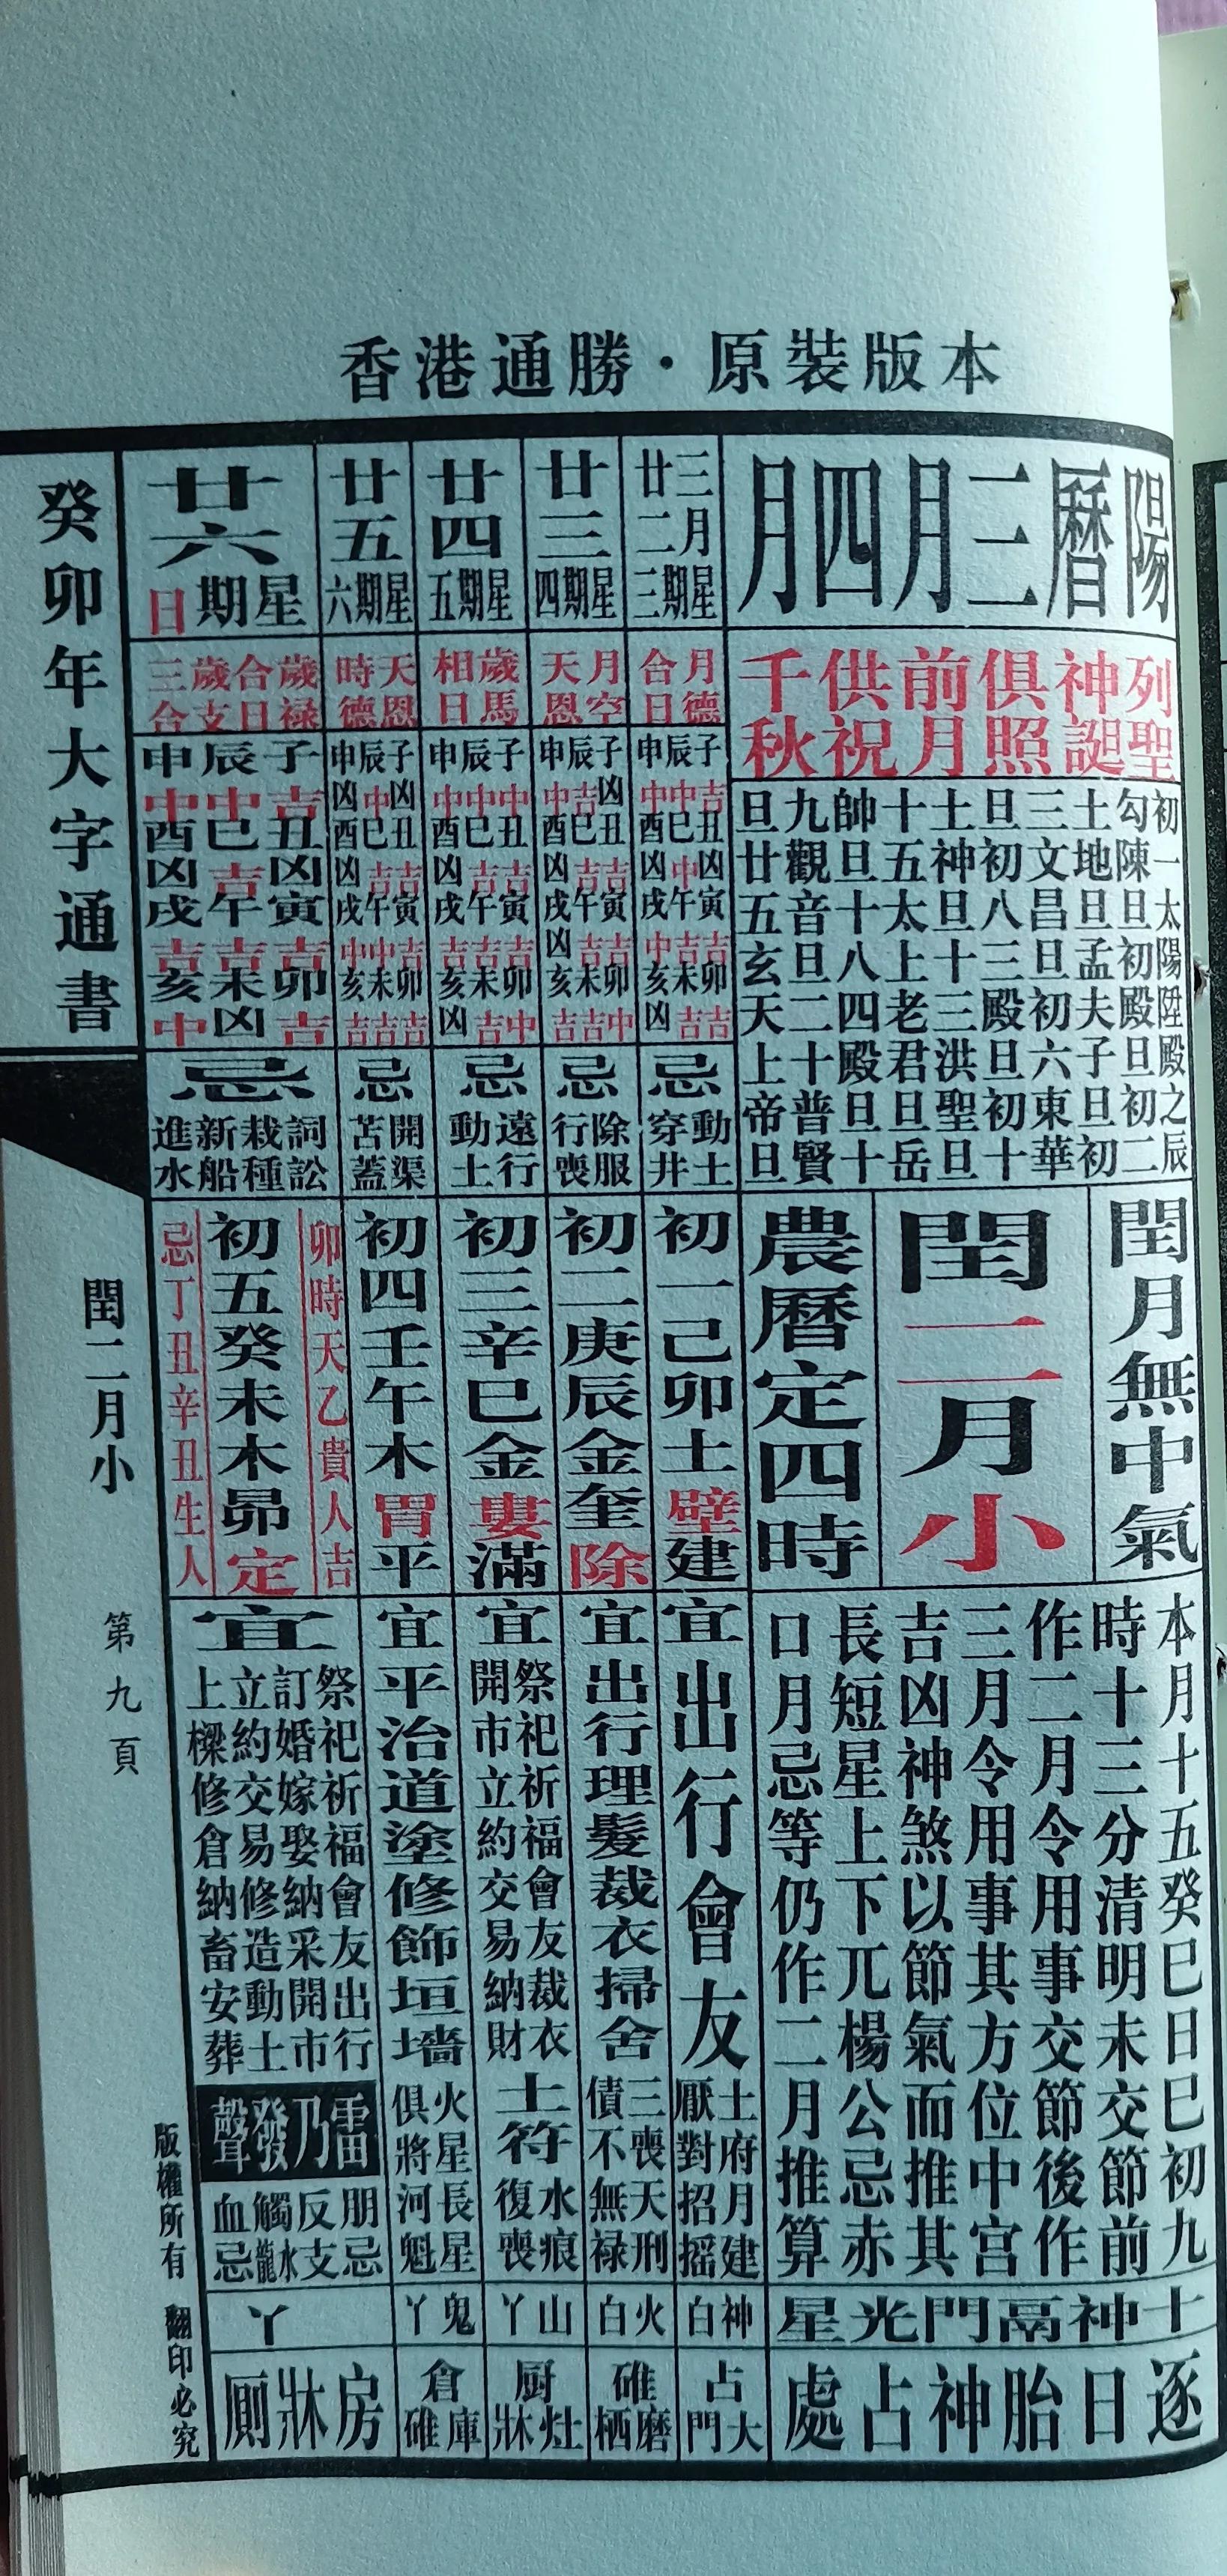 香港通勝·原裝版本
陽曆三月四月
列聖神誕俱照前月供祝千秋
初一太陽陞殿之辰
勾陳旦初殿旦初二
土地旦孟夫子旦初
三文昌旦初六東華
旦初八三殿旦初十
土神旦十三洪聖旦
十五太上老君旦岳
帥旦十八四殿旦十
九觀音旦二十普賢
旦廿五玄天上帝旦
閏月無中氣
閏二月小
農曆定四時
本月十五癸巳日巳初九
時十三分清明未交節前
作二月令用事交節後作
三月令用事其方位中宮
吉凶神煞以節氣而推其
長短星上下兀楊公忌赤
口月忌等仍作二月推算
十神鬲門光星
逐日胎神占處
三月廿二
星期三
月德合日
子吉辰中申中
丑凶巳中酉凶
寅吉午吉戌中
卯吉未吉亥凶
忌
動土穿井
初一己卯土壁建
宜
出行會友
土府月建
厭對招搖
神白
占大門
廿三
星期四
月空天恩
子凶辰吉申中
丑吉巳吉酉凶
寅吉午吉戌凶
卯中未吉亥吉
忌
除服行喪
初二庚辰金奎除
宜
出行理髮裁衣掃舍
三喪天刑
債不無祿
火白
碓磨栖
廿四
星期五
歲馬相日
子中辰中申中
丑吉巳吉酉凶
寅吉午吉戌吉
卯中未吉亥凶
忌
遠行動土
初三辛巳金婁滿
宜
祭祀祈福會友裁衣
開市立約交易納財
土符
水痕復喪
山丫
厨灶牀
廿五
星期六
天恩時德
子凶辰中申凶
丑吉巳吉酉凶
寅吉午中戌中
卯吉未吉亥吉
忌
開渠苫蓋
初四壬午木胃平
宜
平治道塗修飾垣墻
火星長星
俱將河魁
鬼丫
倉庫碓
廿六
星期日
歲祿合日歲支三合
子吉辰中申中
丑凶巳吉酉凶
寅吉午吉戌吉
卯吉未凶亥中
忌
詞訟栽種新船進水
卯時天乙貴人吉
初五癸未木昴定
忌丁丑辛丑生人
宜
祭祀祈福會友出行
訂婚嫁娶納采開市
立約交易修造動土
上樑修倉納畜安葬
雷乃發聲
朋忌反支觸水龍血忌
丫
房牀厠
癸卯年大字通書
閏二月小
第九頁
版權所有 翻印必究